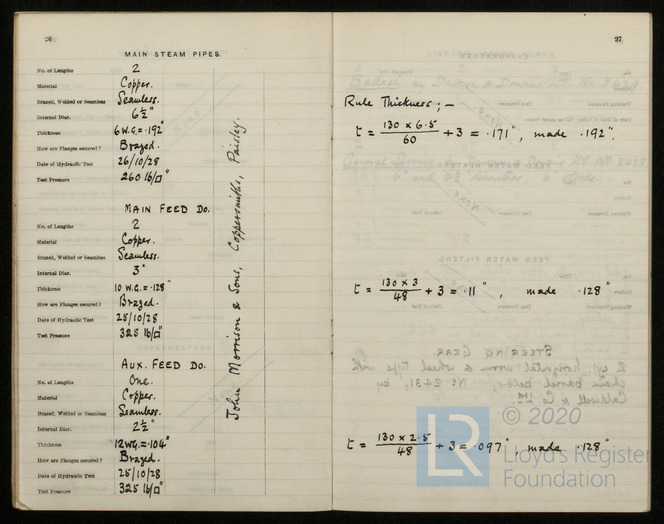 26
MAIN STEAM PIPES.
No. of Lengths 2
Material Copper.
Brazed, Welded or Seamless Seamless.
Internal Diar. 6½"
Thickness 6 W.G. = .192"
How are Flanges secured? Brazed.
Date of Hydraulic Test 26/10/28
Test Pressure 260 lb/□"
MAIN FEED DO.
No. of Lengths 2
Material Copper.
Brazed, Welded or Seamless Seamless.
Internal Diar. 3"
Thickness 10 W.G. = .128"
How are Flanges secured? Brazed.
Date of Hydraulic Test 25/10/28
Test Pressure 325 lb/□"
AUX. FEED DO.
No. of Lengths One.
Material Copper.
Brazed, Welded or Seamless Seamless.
Internal Diar. 2½"
Thickness 12 W.G. = .104"
How are Flanges secured? Brazed.
Date of Hydraulic Test 25/10/28
Test Pressure 325 lb/□"
John Morrison & Sons, Coppersmiths, Paisley.
27
Rule Thickness; —
t = 130 x 6.5 / 60 + 3 = .171", made .192".
t = 130 x 3 / 48 + 3 = .11", made .128"
t = 130 x 2.5 / 48 + 3 = .097", made .128"
© 2020
LR
Lloyd's Register
Foundation